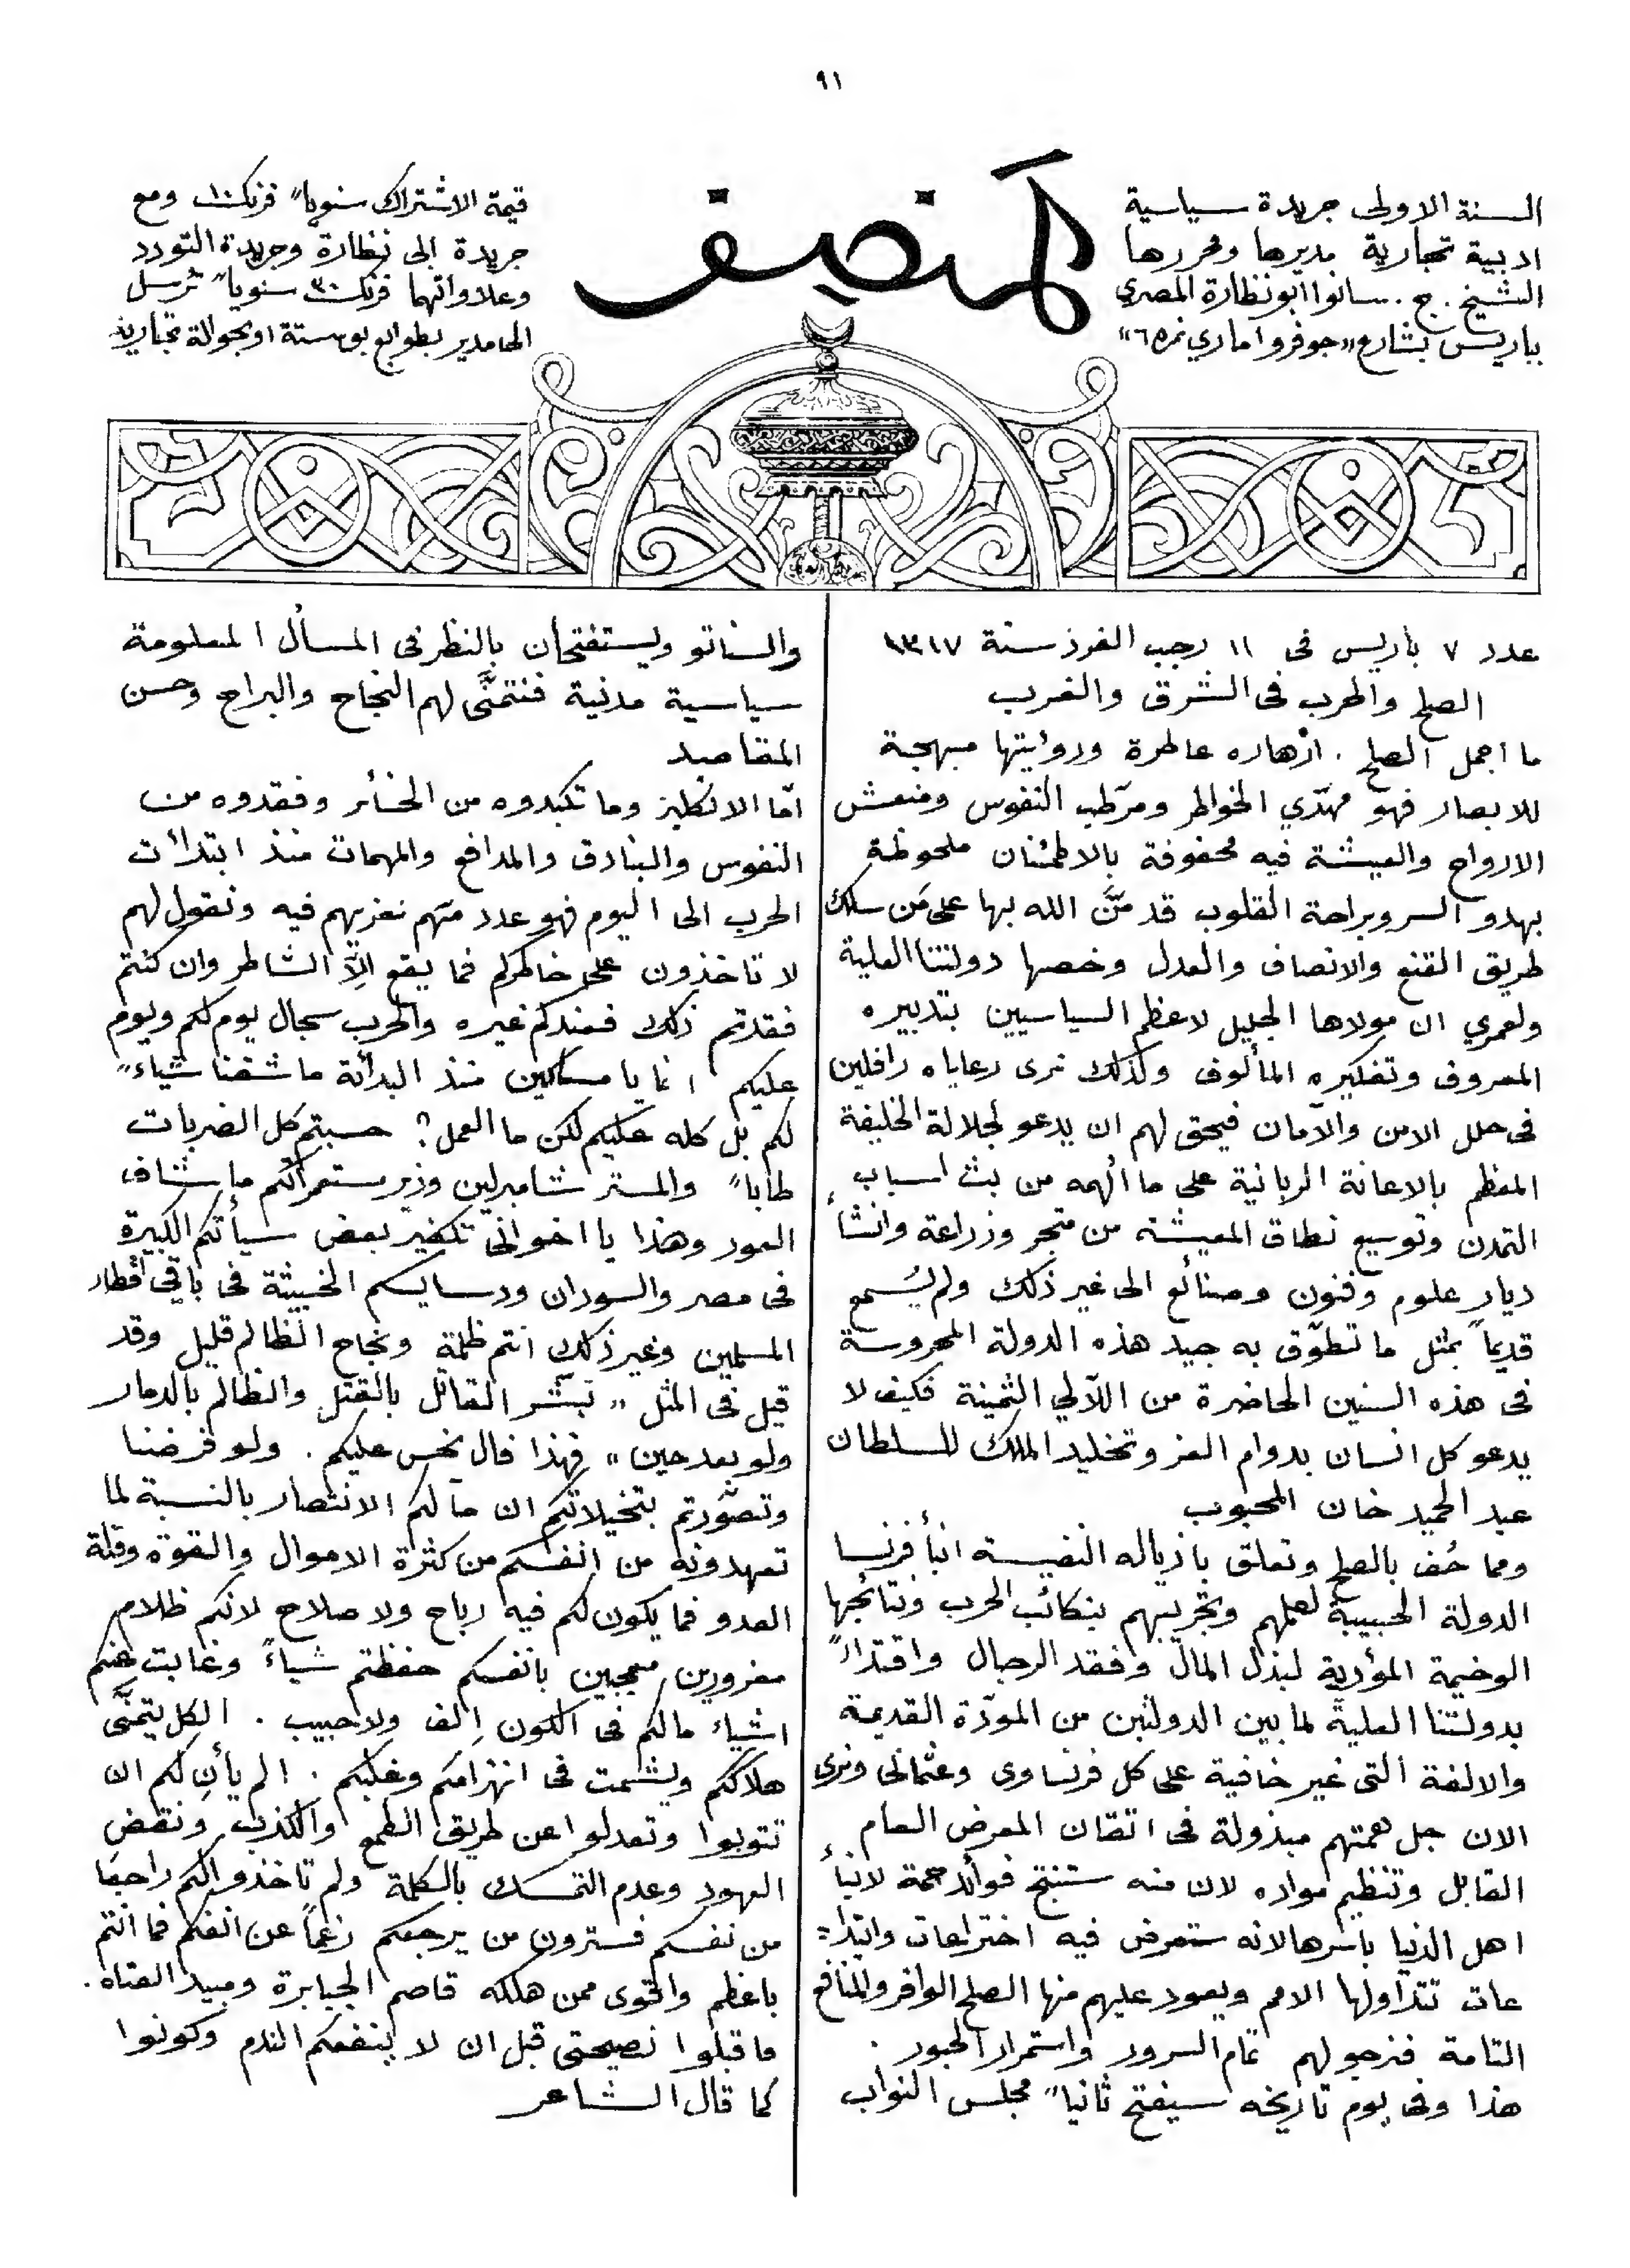 ٩١
السنة الاولى جريدة سياسية
ادبية تجارية مديرها ومحررها
الشيخ . ج . سانوا ابو نظارة المصري
بباريس بشارع "جوفروا ماري نمره ٦"
المنصف
قيمة الاشتراك سنويا" فرنك ١٠ ومع
جريدة ابى نظارة وجريدة التودد
وعلاواتهما فرنك ٣٠ سنويا" ترسل
الى مدير بطوابع بوستة او بحوالة تجارية
عدد ٧ باريس فى ١١ رجب الفرد سنة ١٣١٧
الصلح والحرب فى الشرق والغرب
ما اجمل الصلح . ازهاره عاطرة ورؤيتها مبهجة
للابصار فهو مهدّي الخواطر ومرّطب النفوس ومنعش
الارواح والعيشة فيه محفوفة بالاطمئنان ملحوظة
بهدو السر وبراحة القلوب قد منَّ الله بها على مَن سلك
طريق القنع والانصاف والعدل وخصها دولتنا العلية
ولعمري ان مولاها الجليل لاعظم السياسيين بتدبيره
المعروف وتفكيره المألوف ولذلك نرى رعاياه رافلين
فى حلل الامن والآمان فيحق لهم ان يدعو لجلالة الخليفة
المعظم بالاعانة الربانية على ما الهمه من بث اسباب
التمدن وتوسيع نطاق المعيشة من متجر وزراعة وانشاء
ديار علوم وفنون وصنائع الى غير ذلك ولم يُسمع
قديماً بمثل ما تطوّق به جيد هذه الدولة المحروسة
فى هذه السنين الحاضرة من اللآلي الثمينة فكيف لا
يدعو كل انسان بدوام العز وتخليد الملك للسلطان
عبد الحميد خان المحبوب
ومما حُف بالصلح وتعلق باذياله النفيسة ابنأ فرنسا
الدولة الحبيبة لعلمهم وتجريبهم بنكائب الحرب ونتائجها
الوخيمة المؤدية لبذل المال وفقد الرجال واقتدأً
بدولتنا العلية لما بين الدولتين من المودّة القديمة
والالفة التى غير خافية على كل فرنساوى وعثمانى ونرى
الان جل همتهم مبذولة فى اتقان المعرض العام
القابل وتنظيم مواده لان منه ستنتج فوائد جمة لابنأ
اهل الدنيا باسرها لانه ستعرض فيه اختراعات وابتدا=
عات تتداولها الامم ويعود عليهم منها الصلح الوافر والمنافع
التامة فنرجو لهم تمام السرور واستمرار الحبور .
هذا وفى يوم تاريخه سيفتح ثانيا" مجلس النواب
والسناتو ويستفتحان بالنظر فى المسأل المعلومة
سياسية مدنية فنتمنَّى لهم النجاح والبراح وحسن
المقاصد
امّا الانكليز وما تكبدوه من الخسأر وفقدوه من
النفوس والبنادق والمدافع والمهمات منذ ابتدائت
الحرب الى اليوم فهو عدد منهم نعزيهم فيه ونقول لهم
لا تاخذون على خاطركم فما يقع الاَّ الشاطر وان كنتم
فقدتم ذلك فعندكم غيره والحرب سجال يوم لكم ويوم
عليكم انما يا مساكين منذ البدأئة ما شفنا شياء"
لكم بل كله عليكم لكن ما العمل؟ حسبتم كل الضربات
طابا" والمستر شامبرلين وزير ستعمراتكم ما شاف
العور وهذا يا اخوانى تكفير بعض سيأتكم الكبيرة
فى مصر والسودان ودسايسكم الخبيثة فى باقي اقطار
المسلمين وغير ذلك انتم ظلمة ونجاح الظالم قليل وقد
قيل فى المثل " بَشّر القاتل بالقتل والظالم بالدمار
ولو بعد حين " فهذا فال نحس عليكم . ولو فرضنا
وتصوّرتم بتخيلاتكم ان مآلكم الانتصار بالنسبة لما
تعهدونه من انفسكم من كثرة الاموال والقوة وقلة
العدو فما يكون لكم فيه رباح ولا صلاح لانكم ظلام
مغرورين معجبين بانفسكم حفظتم شياءً وغابت عنكم
اشياء مالكم فى الكون اِلف ولا حبيب . الكل يتمنَّى
هلاككم ويشمت فى انهزامكم وغلبكم . الم يأنِ لكم ان
تتوبوا وتعدلوا عن طريق الطمع والكذب ونقض
العهود وعدم التمسك بالكلمة ولم تاخذو الكم راجعا
من نفسكم فسترون من يرجعكم رغماً عن انفكم فما انتم
باعظم واقوى ممن هلكه قاصم الجبابرة ومبيد العتاه .
فاقبلوا نصيحتى قبل ان لا ينفعكم الندم وكونوا
كما قال الشاعر